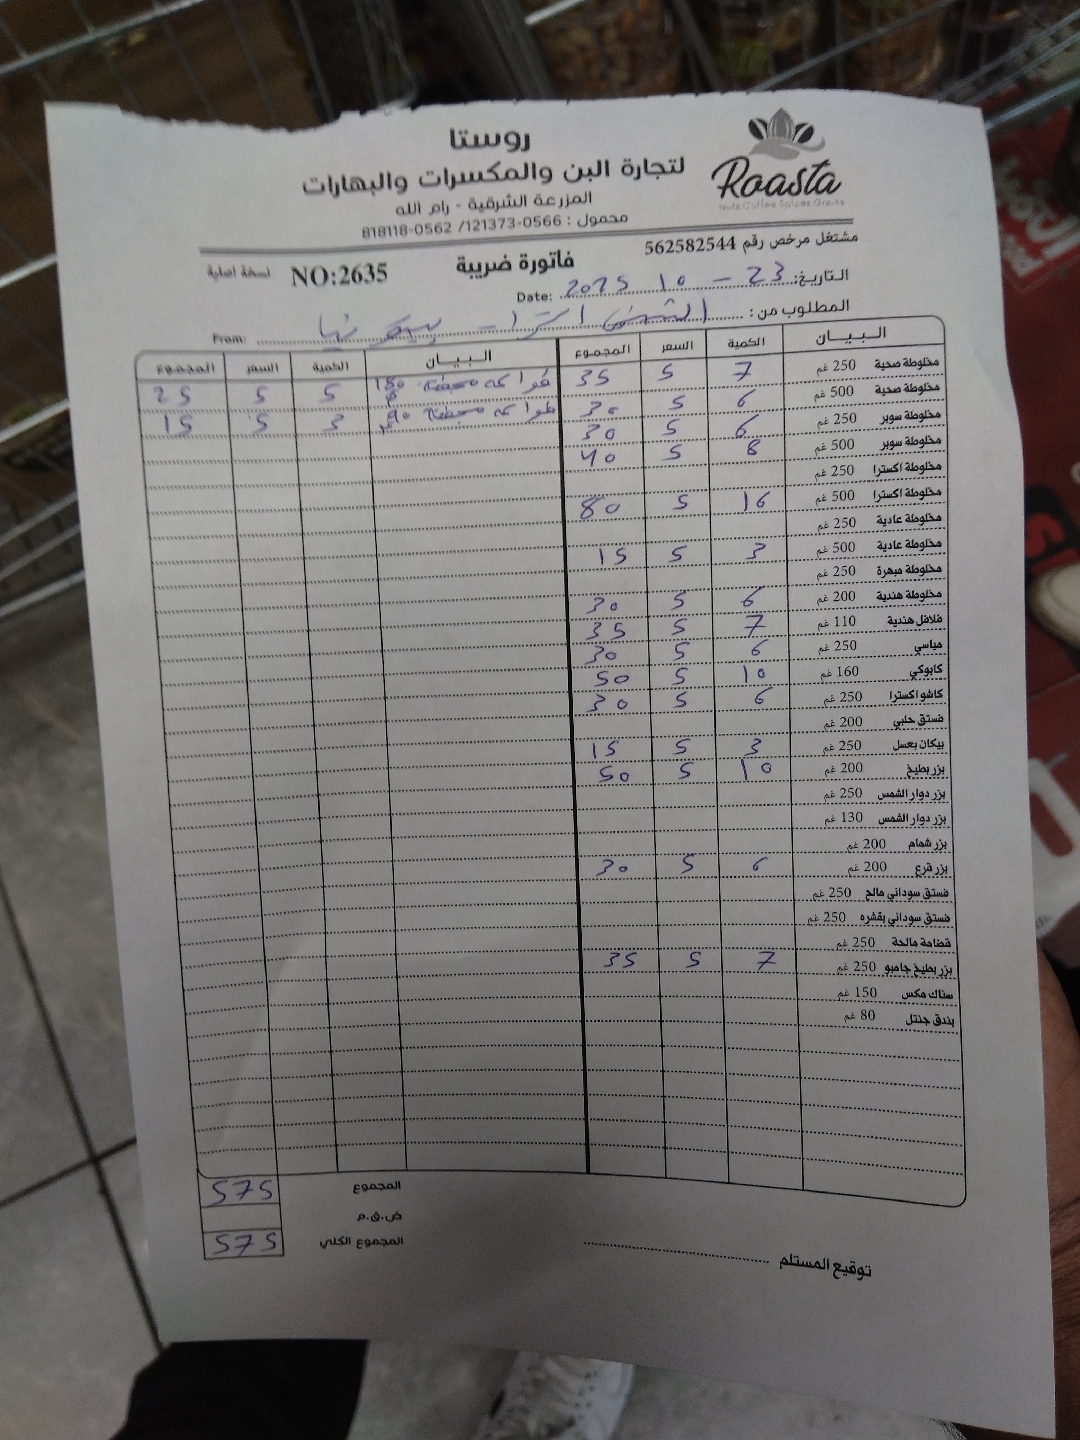 روستا
Roasta
لتجارة البن والمكسرات والبهارات
Nuts Coffee Spices Grains
المزرعة الشرقية - رام الله
محمول : 0566-121373/ 0562-818118
مشتغل مرخص رقم 562582544
فاتورة ضريبة NO:2635 نسخة اصلية
التاريخ: 23 - 10 2025 Date:
المطلوب من: From:
البيان الكمية السعر المجموع البيان الكمية السعر المجموع
مخلوطة صحية 250 غم 7 5 35 فواكه مجففة 180 5 5 25
مخلوطة صحية 500 غم 6 5 30 فواكه مجففة 3 5 15
مخلوطة سوبر 250 غم 6 5 30
مخلوطة سوبر 500 غم 8 5 40
مخلوطة اكسترا 250 غم
مخلوطة اكسترا 500 غم 16 5 80
مخلوطة عادية 250 غم
مخلوطة عادية 500 غم 3 5 15
مخلوطة مبهرة 250 غم
مخلوطة هندية 200 غم 6 5 30
فلافل هندية 110 غم 7 5 35
مياسي 250 غم 6 5 30
كابوكي 160 غم 10 5 50
كاشو اكسترا 250 غم 6 5 30
فستق حلبي 200 غم
بيكان بعسل 250 غم 3 5 15
بزر بطيخ 200 غم 10 5 50
بزر دوار الشمس 250 غم
بزر دوار الشمس 130 غم
بزر شمام 200 غم
بزر قرع 200 غم 6 5 30
فستق سوداني مالح 250 غم
فستق سوداني بقشره 250 غم
قضامة مالحة 250 غم
بزر بطيخ جامبو 250 غم 7 5 35
سناك مكس 150 غم
بندق جنتل 80 غم
المجموع 575
ض.ق.م
المجموع الكلي 575
توقيع المستلم